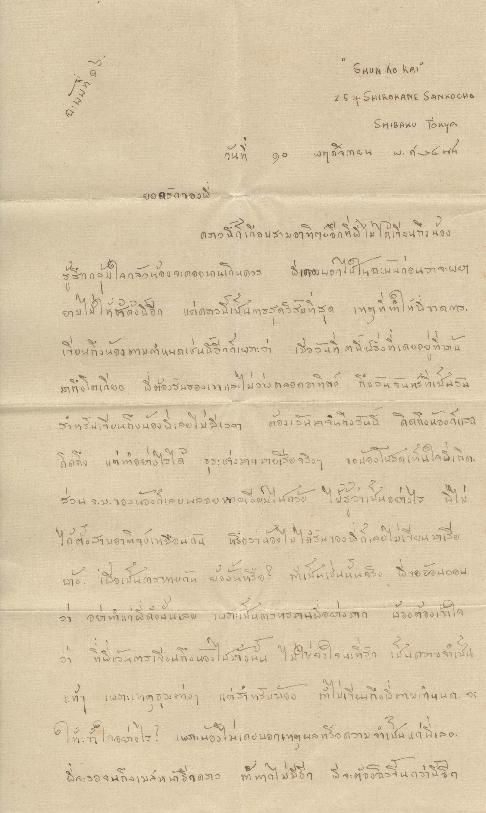 ฉะบับที่ ๑๖.
"SHUN KO KAI"
257 SHIROKANE SANKOCHO
SHIBAKU TOKYO
วันที่ ๑๐ พฤศจิกายน พ.ศ.
ยอดรักของพี่
คราวนี้ก็เกือบสามอาทิตย์อีกที่พี่ไม่ได้เขียนถึงน้อง
รู้สึกกลุ้มใจกลัวน้องจะคอยนานเกินควร พี่เคยบอกไว้ในฉะบับก่อนว่าจะพยา
ยามไม่ให้ช้าดังนี้อีก แต่คราวนี้เป็นการสุดวิสัยที่สุด เหตุที่ทำให้พี่ขาดการ
เขียนถึงน้องตามกำหนดเช่นนี้อีกก็เพราะว่า เมื่อวันที่
มาถึงโตเกียว พี่ต้องรับรองเขาเลยไม่ว่างตลอดอาทิตย์ ถึงวันจันทร์ที่เป็นวัน
สำหรับเขียนถึงน้องพี่เลยไม่มีเวลา ต้องเว้นมาจนถึงวันนี้ คิดถึงน้องก็แสน
คิดถึง แต่ทำอย่างไรได้ ธุระต่างๆมากมายเสียจริงๆ ขอน้องโปรดเห็นใจพี่เถิด.
ส่วน จ.ม. ของน้องก็เลยพลอย ไปด้วย ไม่รู้ว่าเป็นอย่างไร พี่ไม่
ได้ตั้งสามอาทิตย์เหมือนกัน หรือว่าน้องไม่ได้รับของพี่ก็เลยไม่เขียนมาเสีย
บ้าง เพื่อเป็นการ กัน ยังงั้นหรือ? ถ้าเป็นเช่นนั้นจริง พี่ขออ้อนวอน
ว่า อย่าทำแก่พี่ดังนั้นเลย เพราะเป็นการทรมานพี่อย่างมาก น้องต้องเข้าใจ
ว่า ที่พี่เว้นการเขียนถึงน้องไปดังนั้น ไม่ใช่จงใจนะที่รัก เป็นความจำเป็น
แท้ๆ เพราะเหตุธุระต่างๆ แต่สำหรับน้อง ถ้าไม่เขียนถึงพี่ตามกำหนด จะ
ให้เข้าใจอย่างไร? เพราะน้องไม่เคยบอกเหตุผลหรือความจำเป็นแก่พี่เลย.
พี่จะรอจนถึงเมล์หน้าอีกคราว ถ้าหากไม่มีอีก พี่จะต้อง ขึ้นกว่านี้อีก